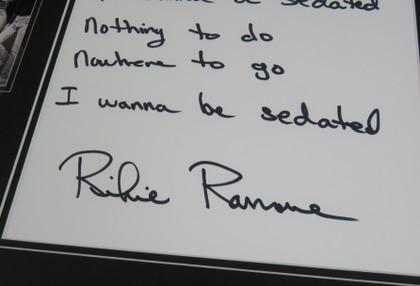 sedated
Nothing to do
Nowhere to go
I wanna be sedated
Richie Ramone